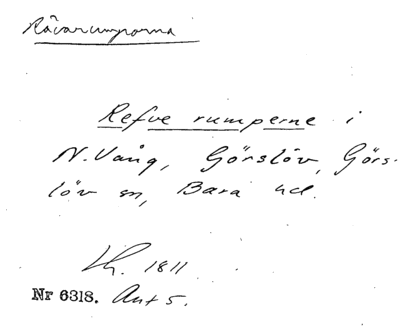 Råvarumporna
Refve rumperne i
N. Vång, Görslöv, Görs-
löv sn, Bara hd.
Lh. 1811
Nr 6318. Akt 5.